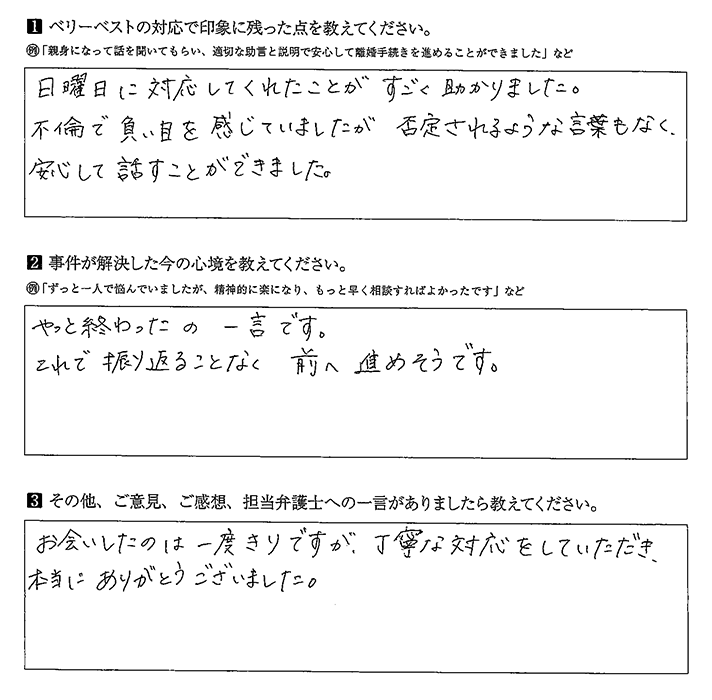 1 ベリーベストの対応で印象に残った点を教えてください。
例「親身になって話を聞いてもらい、適切な助言と説明で安心して離婚手続きを進めることができました」など
日曜日に対応してくれたことが すごく助かりました。
不倫で負い目を感じていましたが 否定されるような言葉もなく、
安心して話すことができました。
2 事件が解決した今の心境を教えてください。
例「ずっと一人で悩んでいましたが、精神的に楽になり、もっと早く相談すればよかったです」など
やっと終わったの一言です。
これで振り返ることなく 前へ進めそうです。
3 その他、ご意見、ご感想、担当弁護士への一言がありましたら教えてください。
お会いしたのは一度きりですが、丁寧な対応をしていただき、
本当にありがとうございました。